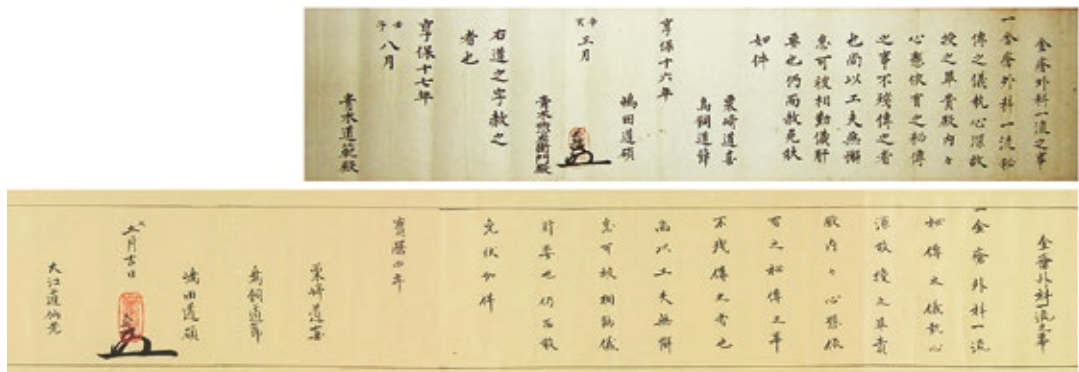 金瘡外科一流之事
一金瘡外科一流秘
傳之儀執心深故
授之畢貴殿内々
心懸依有之秘傳
之事不残傳之者
也尚以工夫無懈
怠可被相勤儀肝
要也仍而赦免状
如件
栗崎道喜
鳥飼道節
享保十六年
嶋田道碩
辛亥 三月
青木惣左衛門殿
右道之字赦之
者也
享保十七年
壬子 八月
青木道範殿
金瘡外科一流之事
一金瘡外科一流
秘傳之儀執心
深故授之畢貴
殿内々心懸依
有之秘傳之事
不残傳之者也
尚以工夫無懈
怠可被相勤儀
肝要也仍而赦
免状如件
寶暦四年
栗崎道喜
鳥飼道節
嶋田道碩
五月吉日
大江道仙老